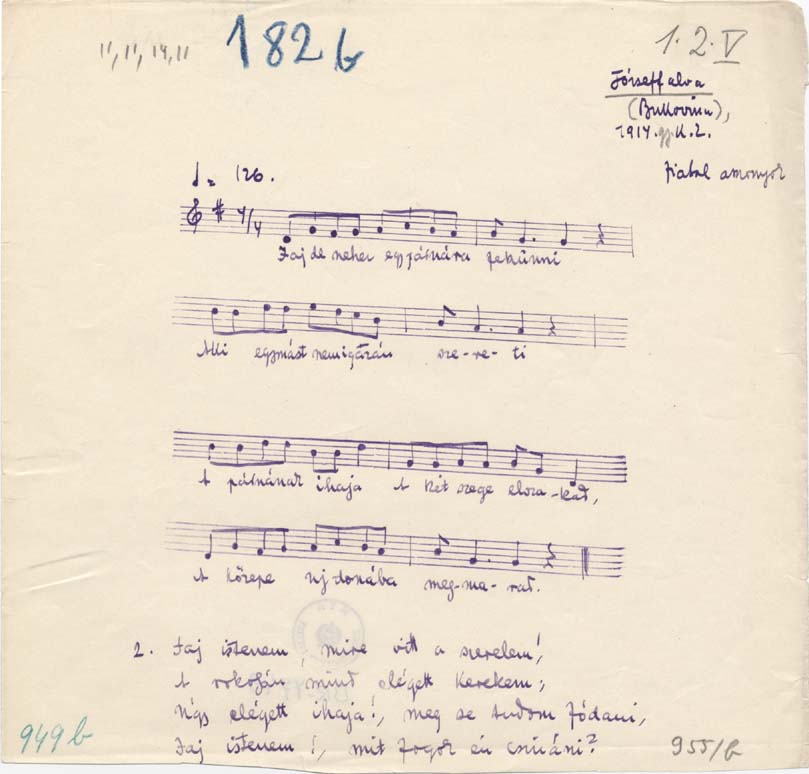 11, 11, 14, 11
182 b
1. 2. V
Józseffalva
(Bukovina),
1914. gy. K. Z.
fiatal asszonyok
♩ = 126.
4/4
Jaj de nehez egy párnára fekünni
Aki egymást nem igázán sze-re-ti
A párnának ihaja A két szege elsza-kad,
A közepe ujdonába meg-ma-rad.
2. Jaj istenem, mire vitt a szerelem!
A rokojám mind elégett kerekem;
Úgy elégett ihaja!, meg se tudom fódani,
Jaj istenem!, mit fogok én csináni?
949 b
955/b